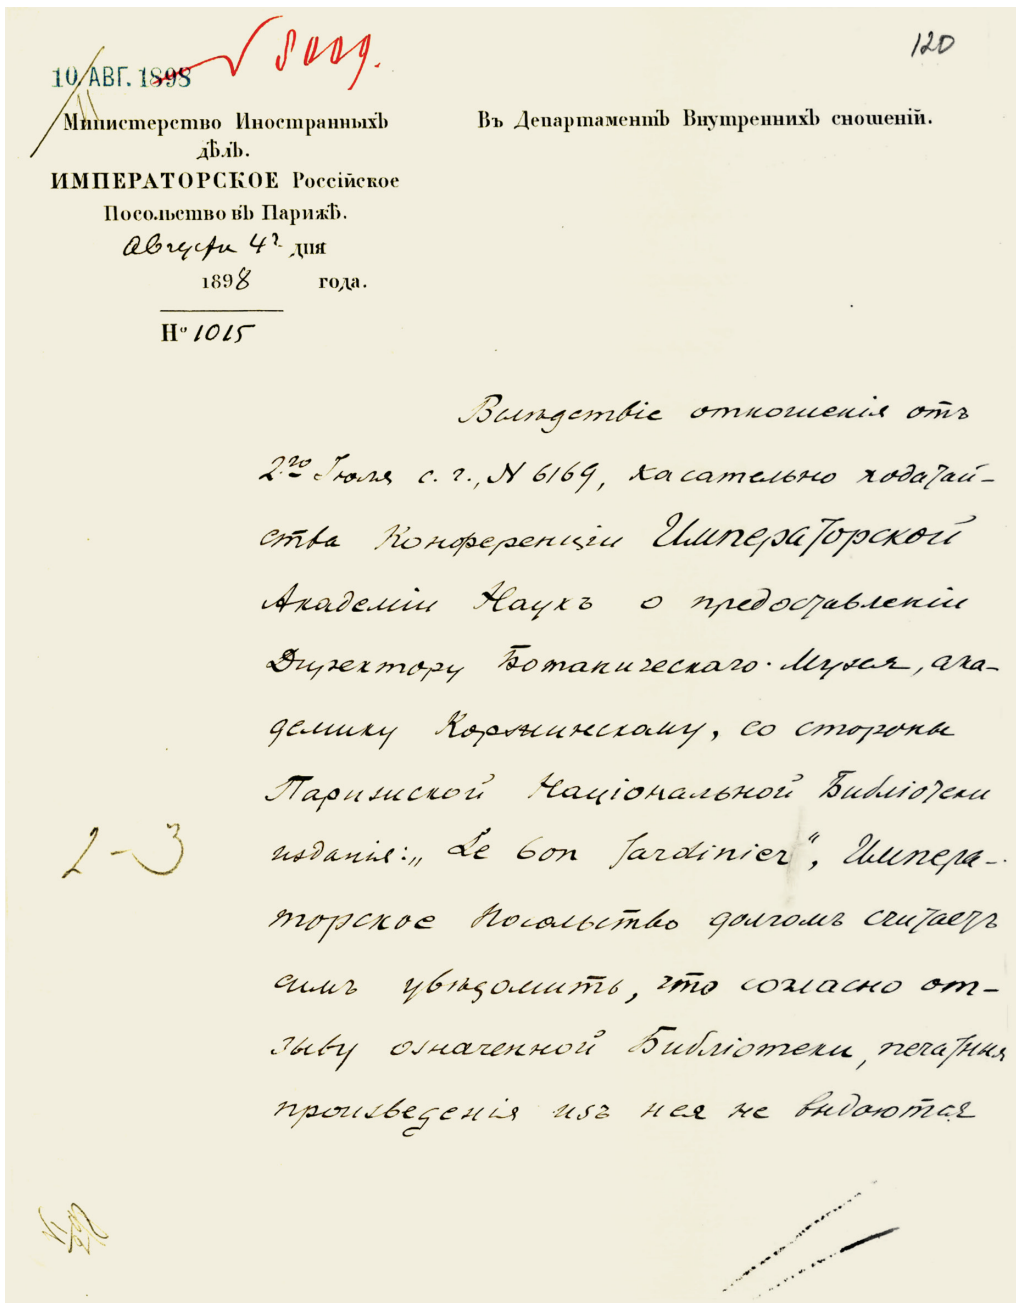 120
8009.
10 АВГ. 1898
Министерство Иностранныхъ
дѣлъ.
ИМПЕРАТОРСКОЕ Россійское
Посольство въ Парижѣ.
Августа 4го дня
1898 года.
Но 1015
Въ Департаментъ Внутреннихъ сношеній.
Вслѣдствіе отношенія отъ
2го Іюля с. г., N 6169, касательно ходатай-
ства Конференціи Императорской
Академіи Наукъ о предоставленіи
Директору Ботаническаго Музея, ака-
демику Коржинскому, со стороны
Парижской Національной Библіотеки
изданія: „Le bon Jardinier“, Импера-
торское Посольство долгомъ считаетъ
симъ увѣдомить, что согласно от-
зыву означенной Библіотеки, печатныя
произведенія изъ нея не выдаются
2-3